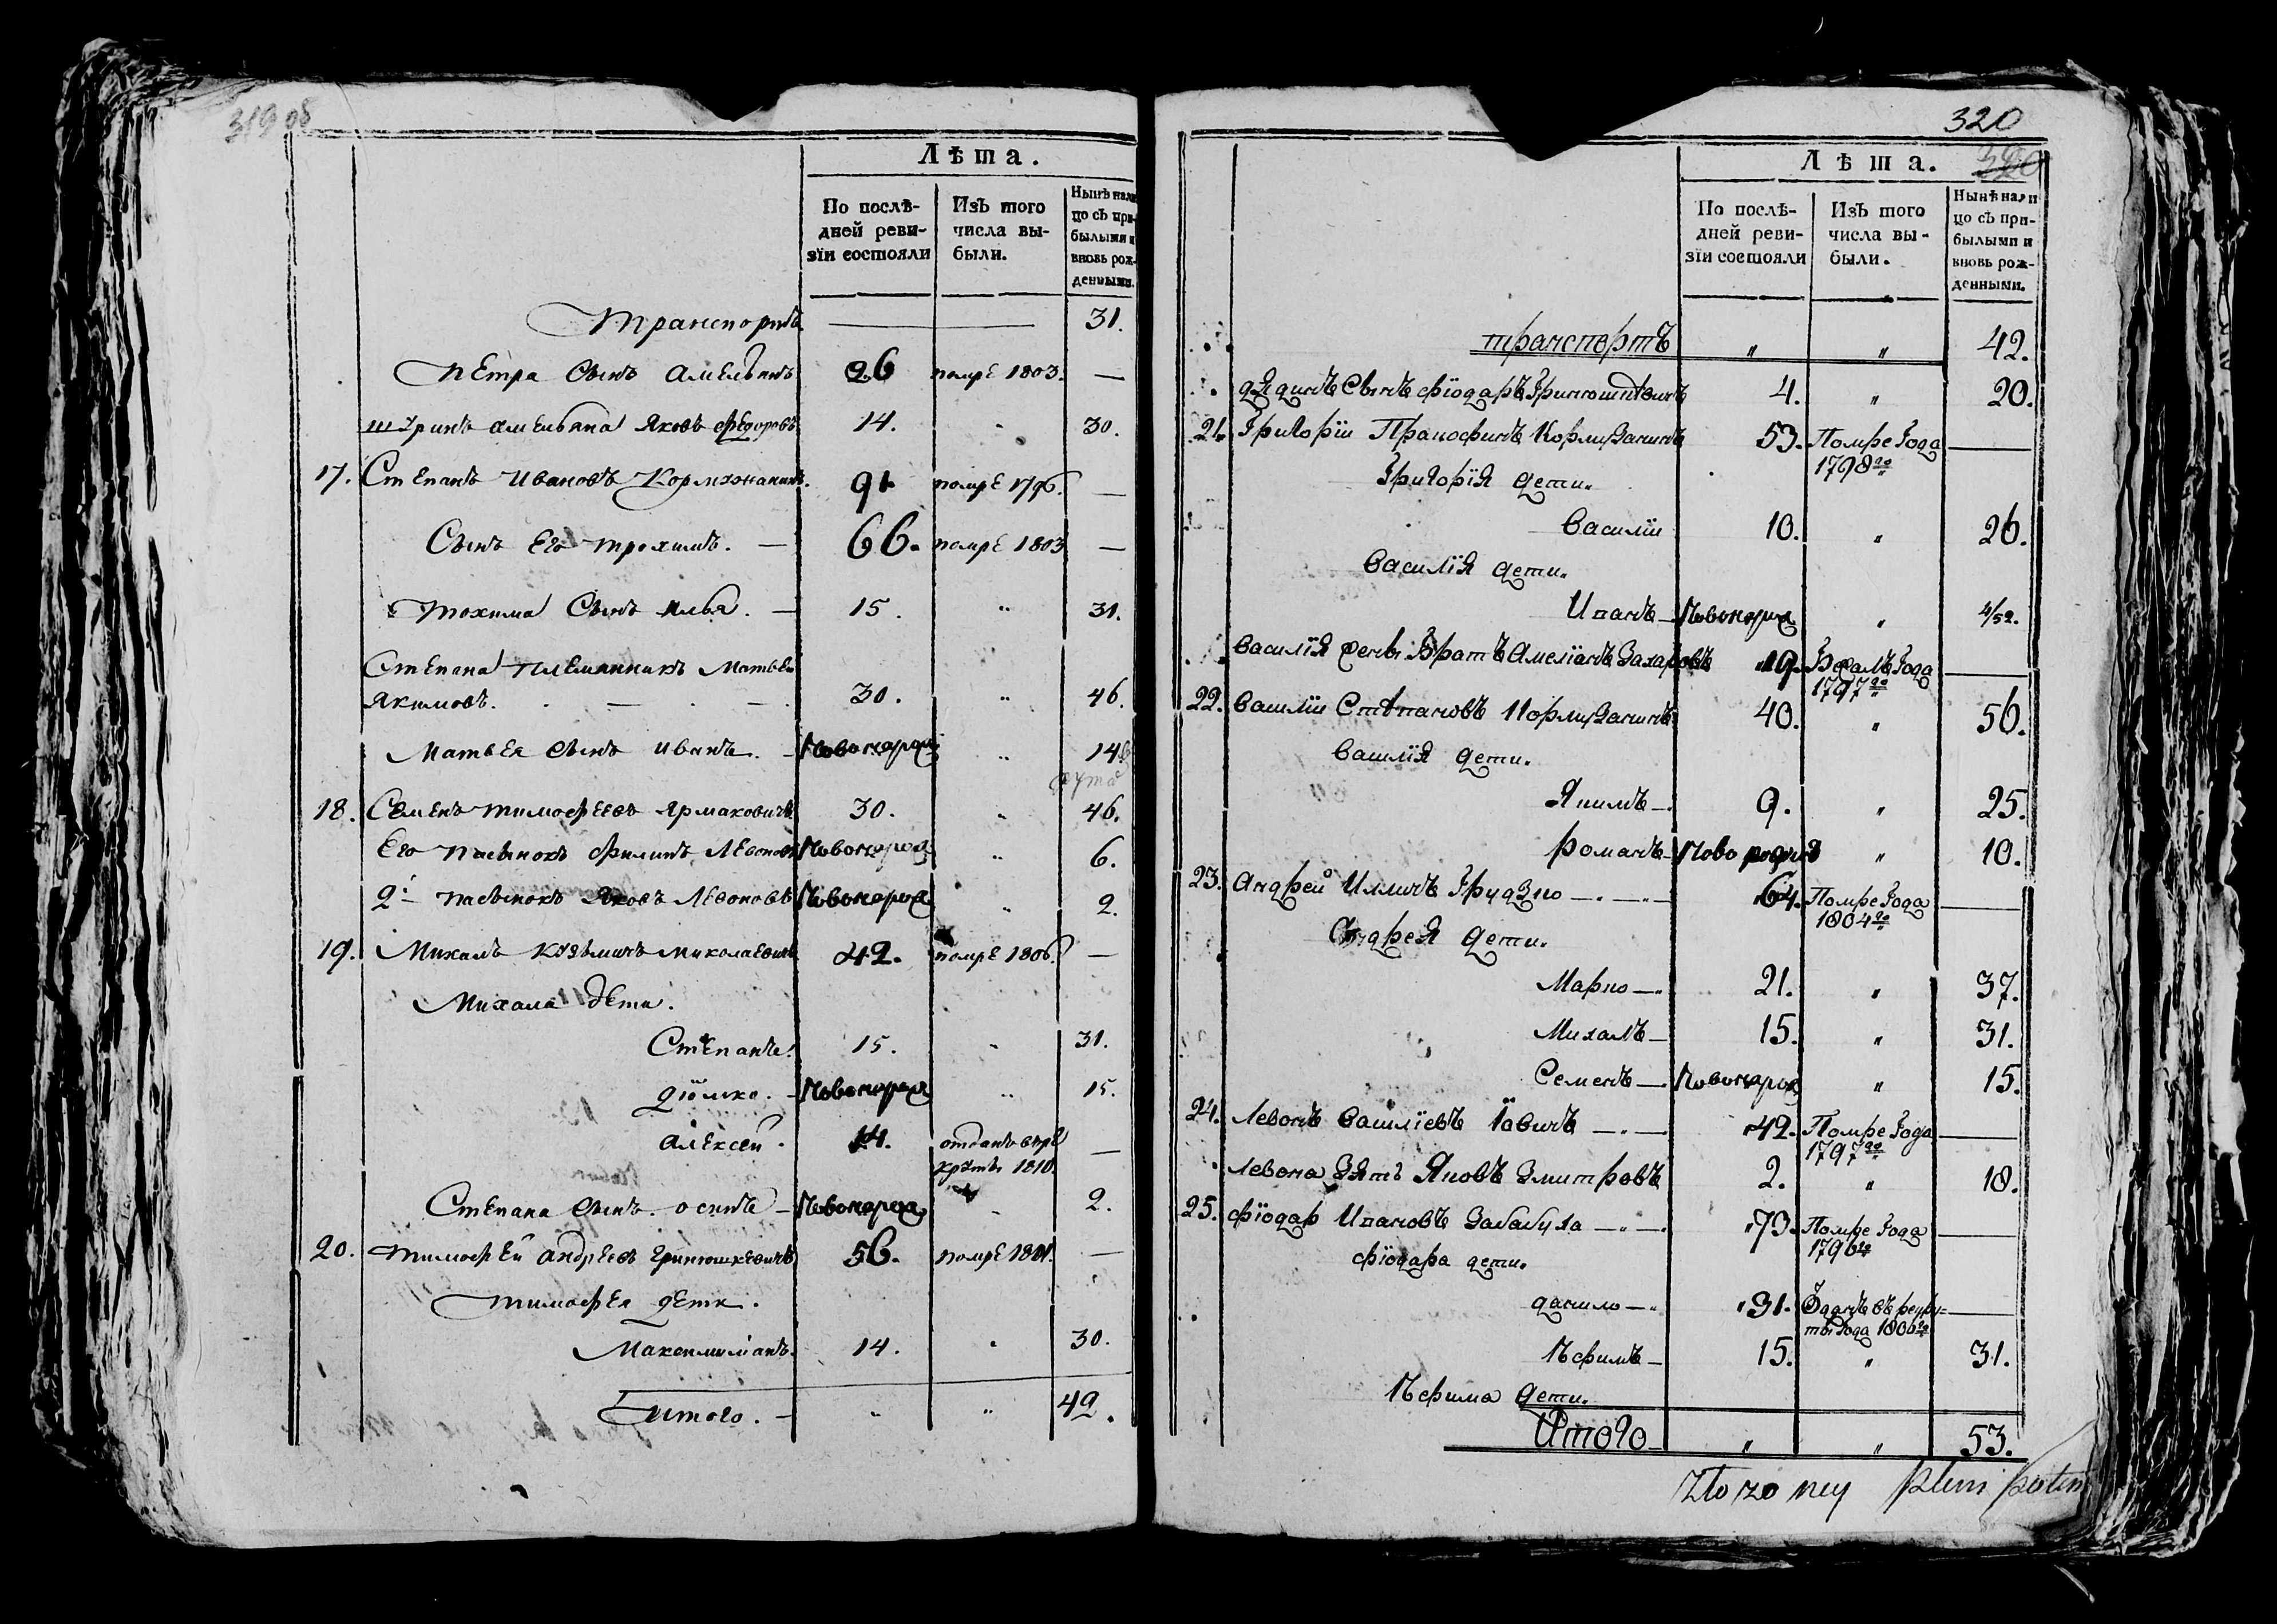 319 об
Лѣта.
По послѣ-
дней реви-
зїи состояли
Изъ того
числа вы-
были.
Нынѣ нали
цо съ при-
былыми и
вновь рож-
денными.
транспортъ 31.
Петра Сынъ Амельянъ 26 помре 1803. —
шуринъ амельяна Яковъ федоровъ 14. " 30.
17. Степанъ Ивановъ 91 помре 1796. —
Сынъ Его трохимъ. — 66. помре 1803 —
тохима Сынъ илья. — 15. " 31.
Степана племянникъ Матвеи
Якимовъ. 30. " 46.
Матвея Сынъ иванъ. — Новонарож " 14
18. Семенъ тимофеевъ Ярмаковичъ 30. " 46.
Его пасынокъ Филипъ Левоновъ Новонарож " 6.
2й пасынокъ Яковъ Левоновъ Новонарож " 2.
19. Михалъ Кузьмичъ Миколаевичъ 42. помре 1806. —
Михала дети.
Степанъ. 15. " 31.
дiомко. — Новонарож " 15.
Алексей. 14. отданъ врѣ
круты 1810. —
Степана Сынъ осипъ — Новонарож " 2.
20. тимофей андреевъ Гринюшкевичъ 56. помре 1801. —
тимофея дети.
Максимилiанъ. 14. " 30.
итого. — " " 42.
320
Лѣта.
По послѣ-
дней реви-
зїи состояли
Изъ того
числа вы-
были.
Нынѣ нали
цо съ при-
былыми и
вновь рож-
денными.
транспортъ " " 42.
Сынъ фїодаръ 4. " 20.
21. Григорїи 53. Помре Года
1798го —
Григорїя дети.
Василїи 10. " 26.
Василїя дети.
Иванъ — Новонарож " 4/52.
Василїя Братъ Амелїанъ Захаровъ 19. Бежалъ Года
1797го —
22. Василїи Степановъ 40. " 56.
Василїя дети.
Якимъ — 9. " 25.
Романъ — Ново " 10.
23. Андрей Иличъ Груцко — 64. Помре Года
1804го —
Андрея дети.
Марко — 21. " 37.
Михалъ — 15. " 31.
Семенъ — Новонарож " 15.
24. Левонъ Василїевъ — 42. Помре Года
1797го —
Левона Зять Яковъ Змитровъ 2. " 18.
25. фїодар Ивановъ Забабула — 73. Помре Года
1796го —
фїодара дети.
данило — 31. Зданъ въ рекру=
ты Года 1806го —
Ѣфимъ — 15. " 31.
Ѣфима дети.
Итого — " " 53.